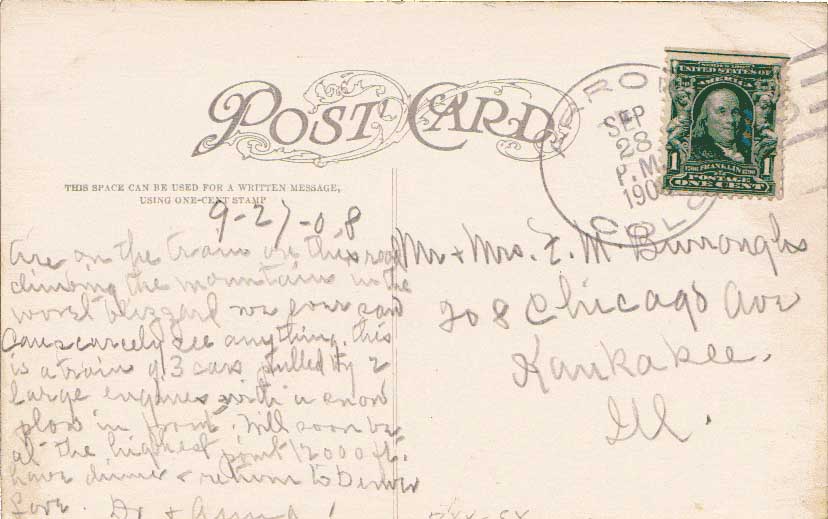 POST CARD
THIS SPACE CAN BE USED FOR A WRITTEN MESSAGE,
USING ONE-CENT STAMP
9-27-08
are on the train on this road
climbing the mountain in the
worst blizzard we ever saw
can scarcely see anything. this
is a train of 3 cars pulled by 2
large engines with a snow
plow in front. Will soon be
at the highest point 12000 ft.
have dinner & return to Denver
Love. Dr &
SERIES 1902
UNITED STATES OF
AMERICA
1706 FRANKLIN 1790
POSTAGE
1 ONE CENT 1
SEP
28
P.M.
190
COLO
Mr & Mrs. E. M Burroughs
208 Chicago Ave
Kankakee.
Ill.